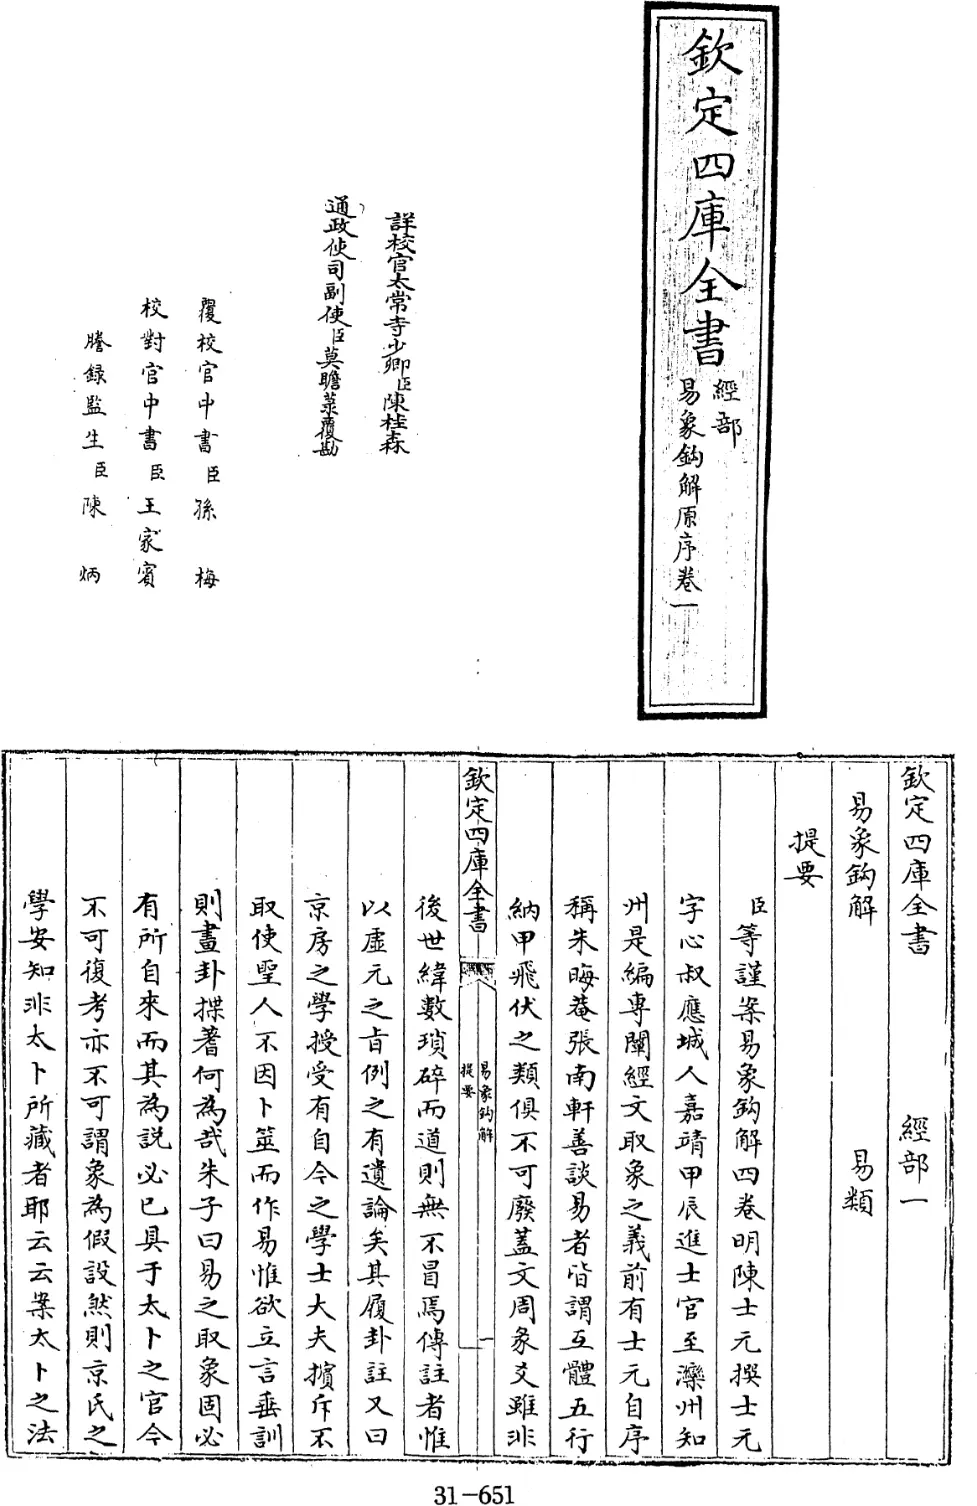 欽定四庫全書
經部
易象鈎解原序卷一
詳校官太常寺少卿臣陳桂森
通政使司副使臣莫瞻菉覆勘
覆校官中書臣孫梅
校對官中書臣王家賓
謄録監生臣陳炳
欽定四庫全書 經部一
易象鈎解 易類
提要
臣等謹案易象鈎解四卷明陳士元撰士元
字心叔應城人嘉靖甲辰進士官至灤州知
州是編專闡經文取象之義前有士元自序
稱朱晦菴張南軒善談易者皆謂互體五行
納甲飛伏之類俱不可廢蓋文周象爻雖非
欽定四庫全書
易象鈎解
提要
一
後世緯數瑣碎而道則無不冒焉傳註者惟
以虛元之旨例之有遺論矣其履卦註又曰
京房之學授受有自今之學士大夫擯斥不
取使聖人不因卜筮而作易惟欲立言垂訓
則畫卦揲蓍何為哉朱子曰易之取象固必
有所自來而其為説必已具于太卜之官今
不可復考亦不可謂象為假設然則京氏之
學安知非太卜所藏者耶云云案太卜之法
31-651